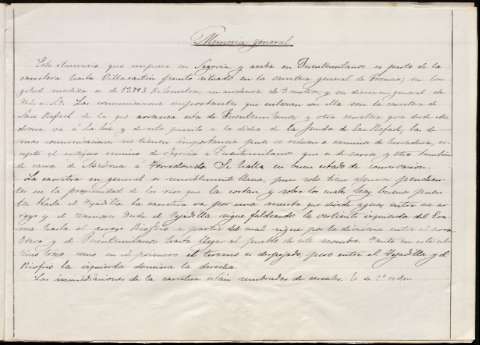 Memoria general.
Este itinerario que empieza en Segovia y acaba en Fuentemilanos es parte de la
carretera hasta Villacastín punto situado en la carretera general de Coruña; su lon-
gitud medida es de 12.843 kilómetros, su anchura de 7 metros y su dirección general de
N.E. á S.O. Las comunicaciones importantes que entran en ella son la carretera de
San Rafael de la que arranca esta de Fuentemilanos y otra que desde
va á la y desde punto á la dicha de la fonda de San Rafael, las de-
mas comunicaciones no tienen importancia pues se reducen á caminos de herradura, ex-
cepto el antiguo camino de Segovia á Fuentemilanos que es de carros y otro tambien
de carros de á en buen estado de conservacion.
La carretera en general es sensiblemente llana, pues solo tiene algunas pendien-
tes en la proximidad de los rios que la cortan y sobre los cuales hay buenos puen-
tes. Hasta el la carretera va por una meseta que divide aguas entre un ar-
royo y el desde el sigue faldeando la vertiente izquierda del
hasta el arroyo Riofrio, á partir del cual sigue por la divisoria entre el
y el de Fuentemilanos hasta llegar al pueblo de este nombre. Tanto en este úl-
timo trozo como en el primero el terreno es despejado, pero entre el y el
Riofrio la izquierda domina la derecha.
Las inmediaciones de la carretera están sembradas de cereales,